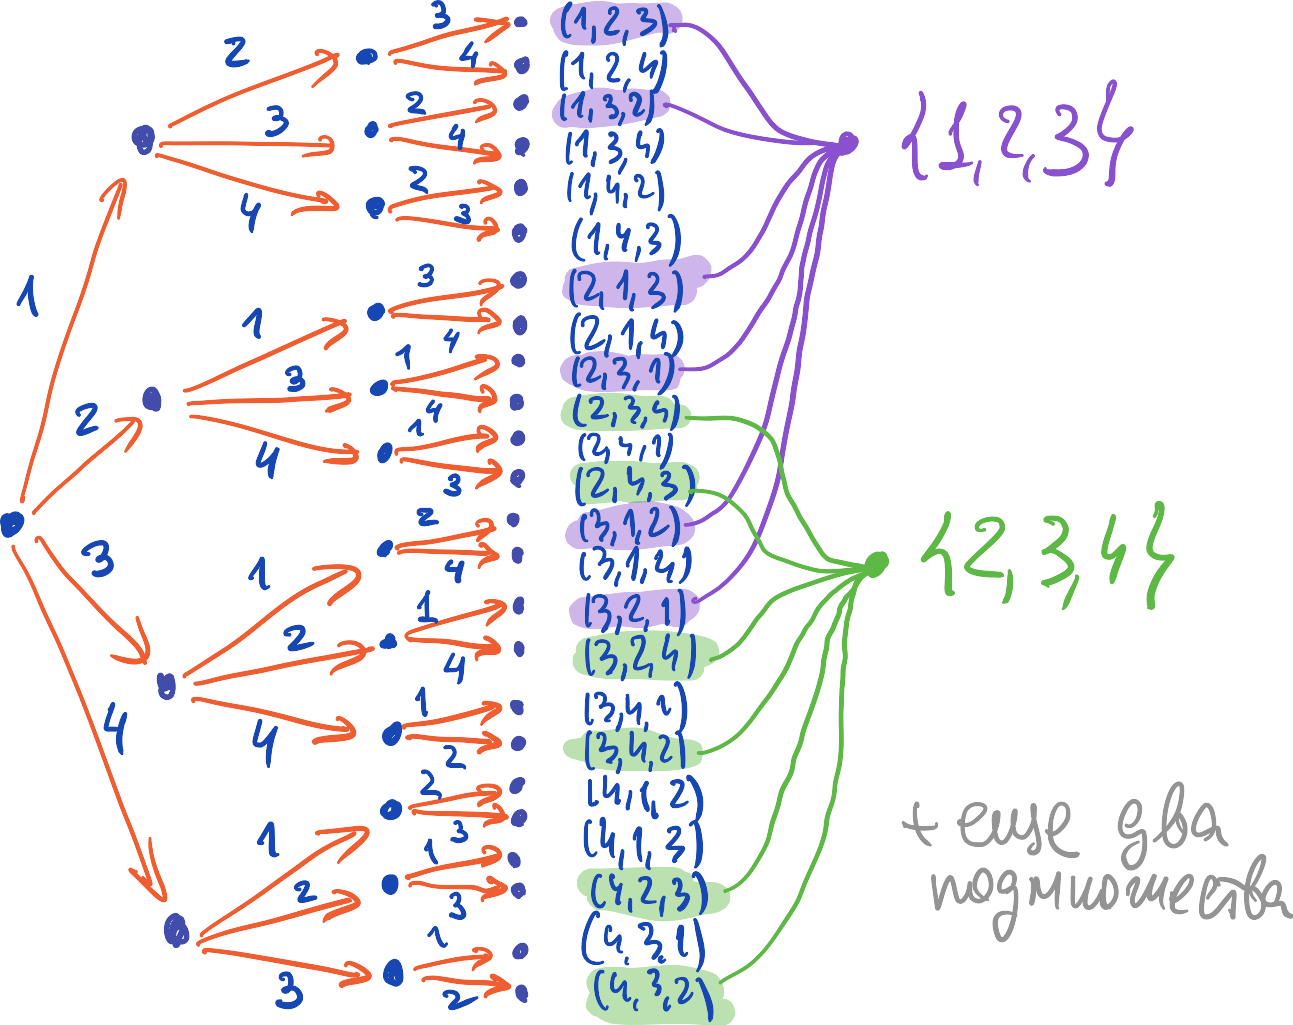 1
2
3
4
2
3
4
1
3
4
1
2
4
1
2
3
3
4
2
4
2
3
3
4
1
4
1
3
2
4
1
4
1
2
2
3
1
3
1
2
(1,2,3)
(1,2,4)
(1,3,2)
(1,3,4)
(1,4,2)
(1,4,3)
(2,1,3)
(2,1,4)
(2,3,1)
(2,3,4)
(2,4,1)
(2,4,3)
(3,1,2)
(3,1,4)
(3,2,1)
(3,2,4)
(3,4,1)
(3,4,2)
(4,1,2)
(4,1,3)
(4,2,3)
(4,3,1)
(4,3,2)
{1,2,3}
{2,3,4}
+ еще два
подмножества